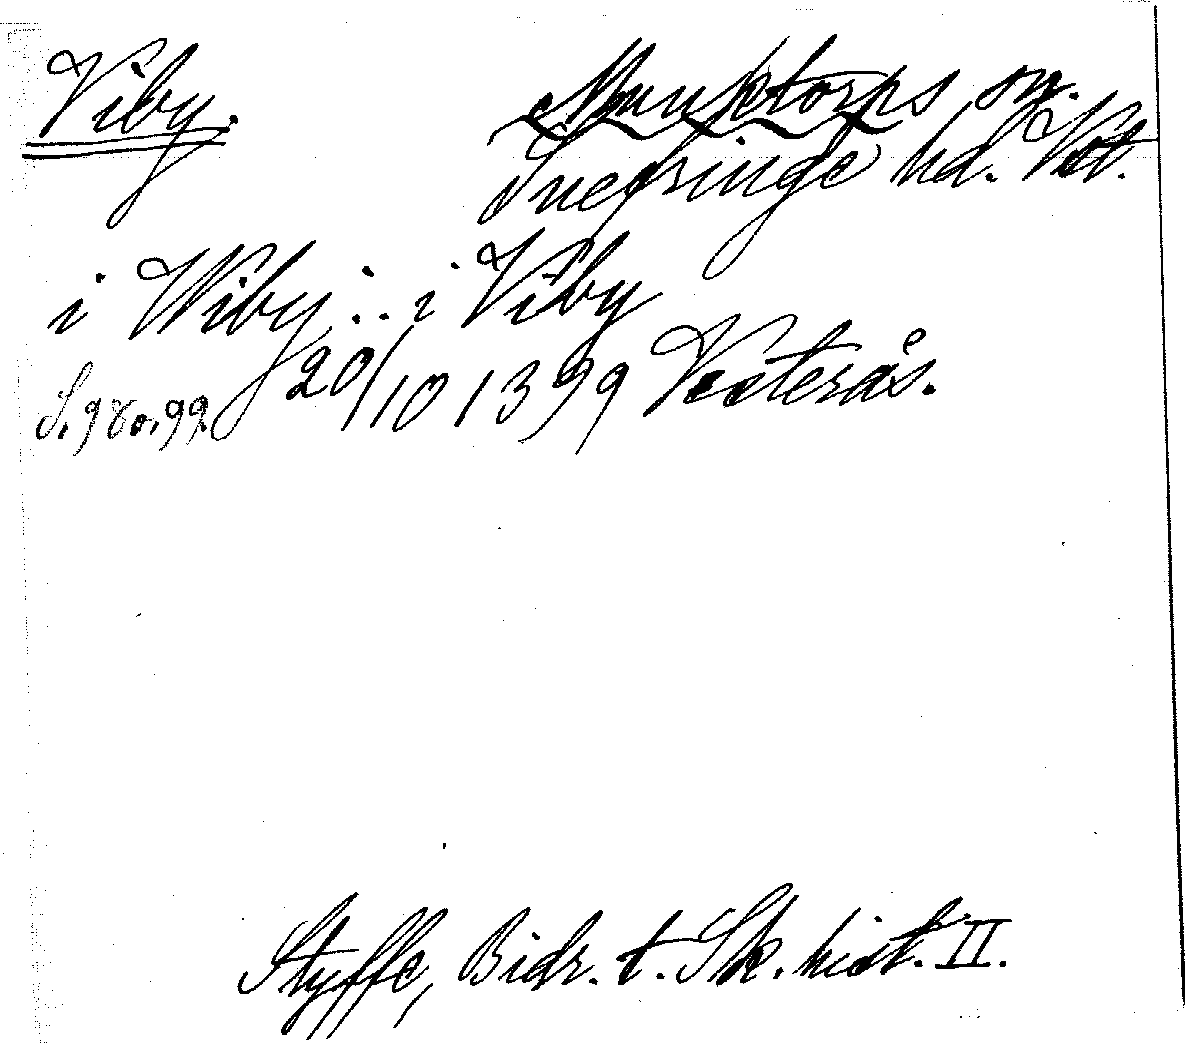 Viby.
Munktorps sn.
Snefringe hd. Vstl.
i Wiby . . i Viby
20/10 1399 Vesterås.
S. 98 o. 99.
Styffe, Bidr. t. Sk. hist. II.